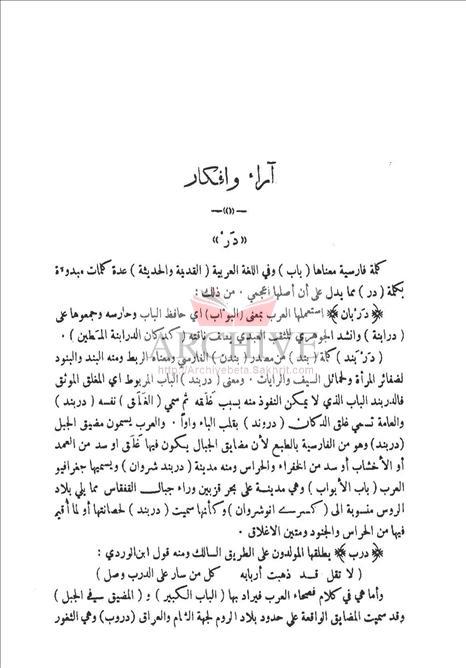 آراء وافكار
« دَرْ »
كلمة فارسية معناها ( باب ) وفي اللغة العربية ( القديمة والحديثة ) عدة كلمات مبدوءة
بكلمة ( در ) مما يدل على أن أصلها اعجمي . من ذلك :
﴿ دَرْبان ﴾ استعملها العرب بمعنى ( البوّاب ) اي حافظ الباب وحارسه وجمعوها على
( درابنة ) وانشد الجوهري للمثقب العبدي يصف ناقته ( كدكان الدرابنة المطين )
( دَرْبَند ) كلمة ( بند ) من مصدر ( بندن ) الفارسي ومعناه الربط ومنه البند والبنود
ARCHIVE
http://Archivebeta.Sakhrit.com
لضفائر المرأة ولحمائل السيف والرايات . ومعنى ( دربند ) الباب المربوط اي المغلق الموثق
فالدربند الباب الذي لا يمكن النفوذ منه بسبب غَلَقه ثم سمي ( الغَلَق ) نفسه ( دربند )
والعامة تسمي غلق الدكان ( دروند ) بقلب الباء واواً . والعرب يسمون مضيق الجبل
( دربند ) وهو من الفارسية بالطبع لأن مضايق الجبال يكون فيها غَلَق او سد من العمد
أو الأخشاب أو سد من الخفراء والحراس ومنه مدينة ( دربند شروان ) ويسميها جغرافيو
العرب ( باب الأبواب ) وهي مدينة على بحر قزبين وراء جبال القفقاس مما يلي بلاد
الروس منسوبة الى ( كسرى انوشروان ) وكأنها سميت ( دربند ) لحصانتها أو لما أقيم
فيها من الحراس والجنود ومتين الاغلاق .
﴿ درب ﴾ يطلقها المولدون على الطريق السالك ومنه قول ابن الوردي :
( لا تقل قد ذهبت أربابه كل من سار على الدرب وصل )
وأما هي في كلام فصحاء العرب فيراد بها ( الباب الكبير ) و ( المضيق في الجبل )
وقد سميت المضايق الواقعة على حدود بلاد الروم لجهة الشام والعراق ( دروب ) وهي الثغور